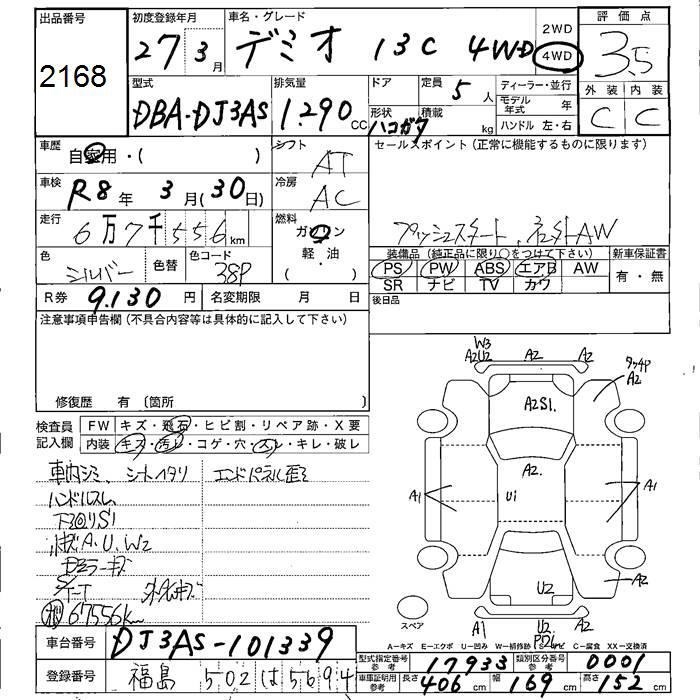 出品番号
2168
初度登録年月
27年3月
車名・グレード
デミオ 13C 4WD
2WD
4WD
評価点
3.5
外装 内装
C C
型式
DBA-DJ3AS
排気量
1.290 CC
ドア
形状
ハコガタ
定員
5人
積載
kg
ディーラー・並行
モデル年式 年
ハンドル 左・右
車歴
自家用・( )
シフト
AT
セールスポイント(正常に機能するものに限ります)
車検
R8年 3月(30日)
冷房
AC
走行
6万7千556km
燃料
ガソリン
軽・油
( )
プッシュスタート、社外AW
色
シルバー
色替
色コード
38P
装備品(純正品に限り○をつけて下さい)
PS PW ABS エアB AW
SR ナビ TV カワ
新車保証書
有・無
R券 9.130円
名変期限 月 日
後日品
注意事項申告欄(不具合内容等は具体的に記入して下さい)
修復歴 有(箇所
検査員記入欄
FW キズ・飛石・ヒビ割・リペア跡・X要
内装 キズ・汚レ・コゲ・穴・スレ・キレ・破レ
車内シミ、シートヘタリ
エンドパネル歪ミ
ハンドルスレ
下回リS1
A.U.W2
ドアミラーキズ
67556km
W3
A2U2
A2
A2
A2
A2S1.
A2.
U1
A1
A1
U2
A2
A1
U2
A2
スペア
A=キズ E=エクボ U=凹み W=補修跡 S=サビ C=腐食 XX=交換済
車台番号
DJ3AS-101339
登録番号
福島 502 は 5694
型式指定番号 参考
17933
類別区分番号 参考
0001
車庫証明用 参考
長さ 406cm 幅 169cm 高さ 152cm